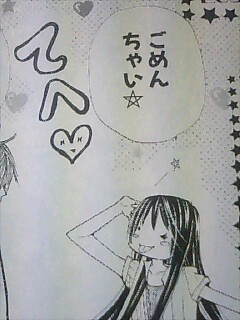 ごめん
ちゃい☆
てへ♡